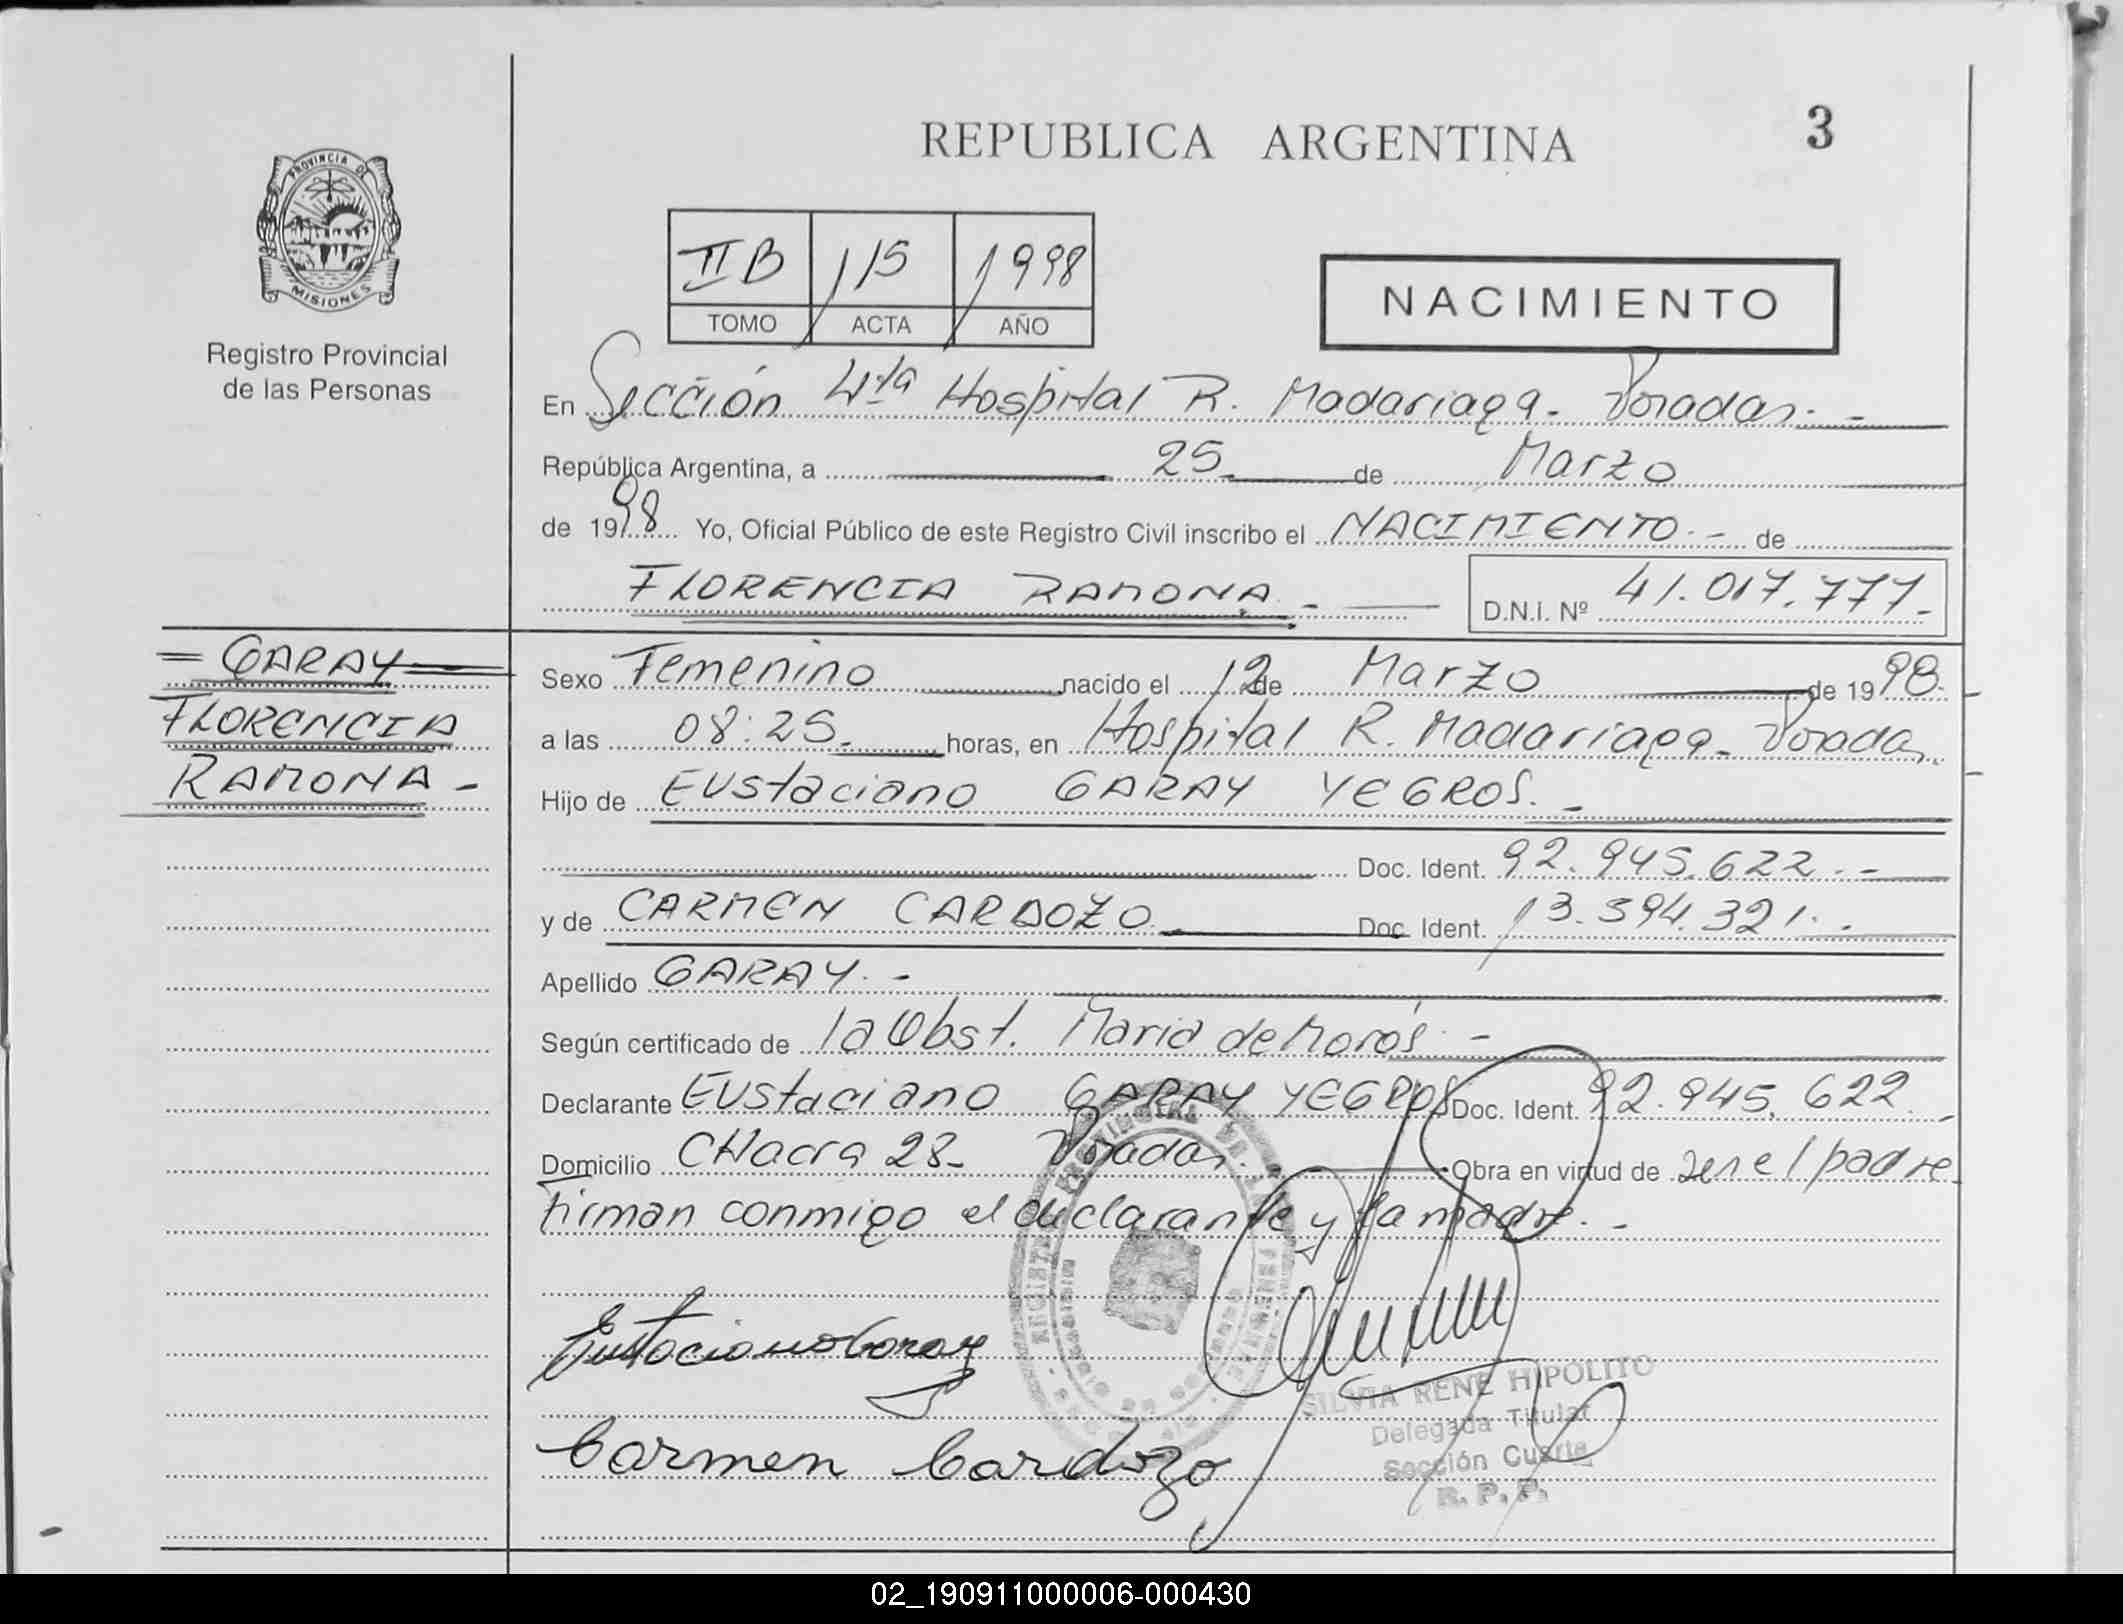 REPUBLICA ARGENTINA
3
PROVINCIA DE
MISIONES
Registro Provincial
de las Personas
II B 115 1998
TOMO ACTA AÑO
NACIMIENTO
En Sección 4ta Hospital R. Madariaga - Posadas. -
República Argentina, a 25 de Marzo
de 1998 Yo, Oficial Público de este Registro Civil inscribo el NACIMIENTO. - de
FLORENCIA RAMONA. - D.N.I. Nº 41.017.777.-
= GARAY =
FLORENCIA
RAMONA -
Sexo Femenino nacido el 12 de Marzo de 1998.
a las 08:25. horas, en Hospital R. Madariaga - Posadas.
Hijo de Eustaciano GARAY YEGROS. -
Doc. Ident. 92.945.622. -
y de CARMEN CARDOZO Doc. Ident. 13.594.321. -
Apellido GARAY. -
Según certificado de la Obst. Maria de Morós. -
Declarante Eustaciano GARAY YEGROS Doc. Ident. 92.945.622. -
Domicilio CHacra 28- Posadas. Obra en virtud de ser el padre
firman conmigo el declarante y la madre. -
Eustaciano Garay
Carmen Cardozo
SILVIA RENE HIPOLITO
Delegada Titular
Sección Cuarta
R. P. P.
02_190911000006-000430